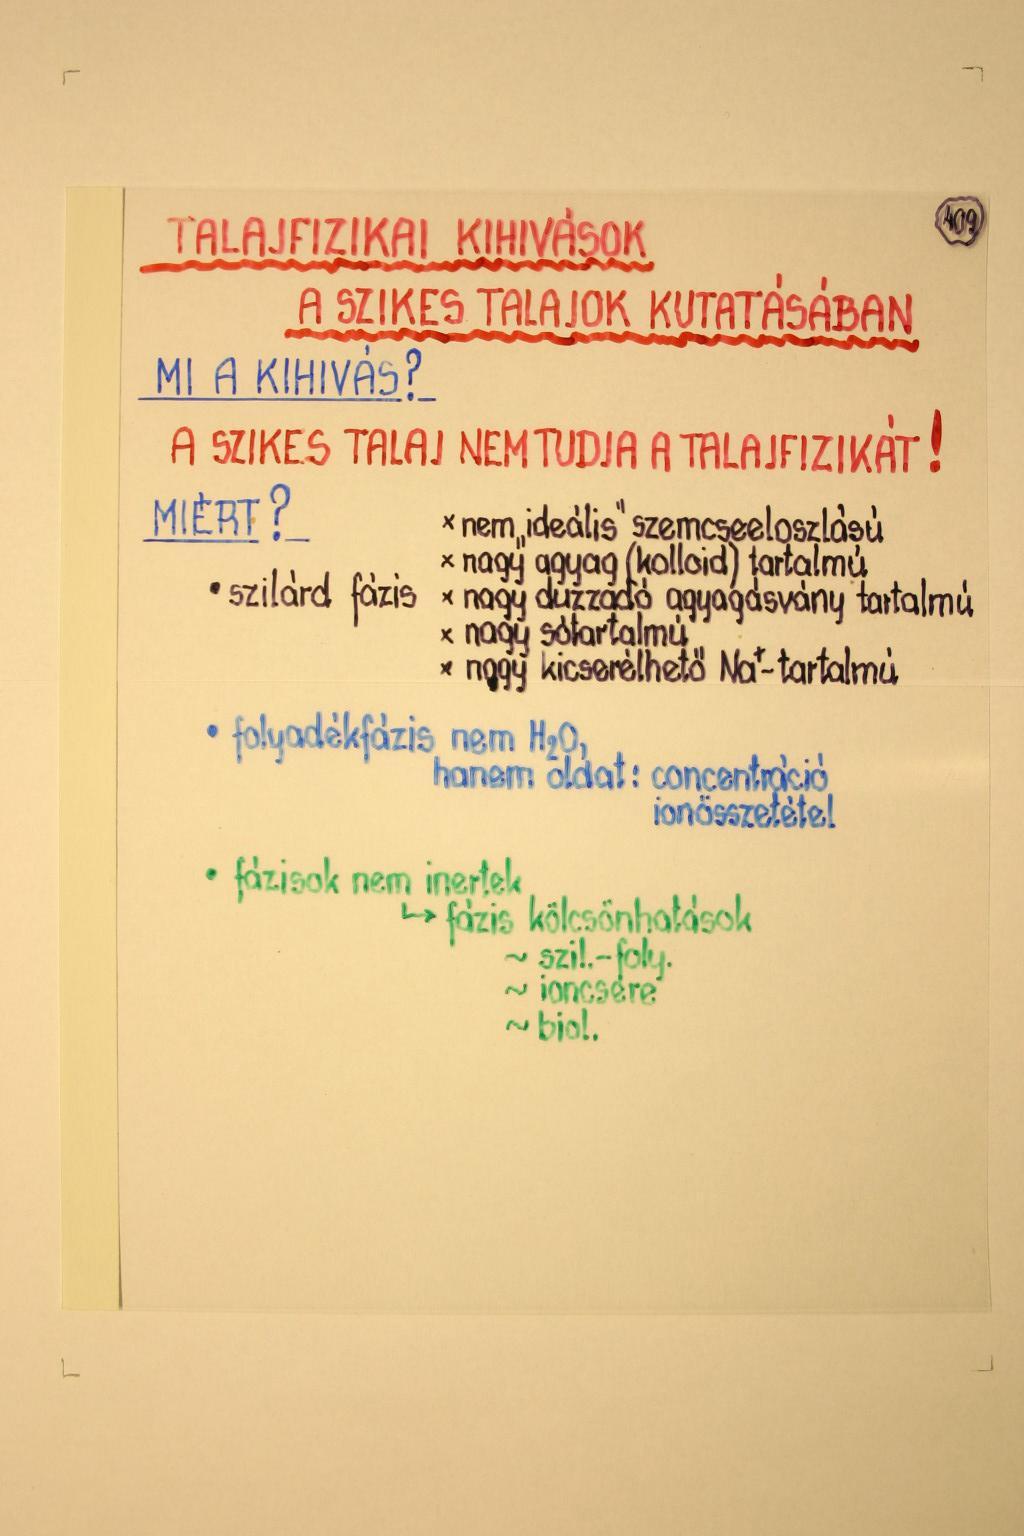 409
TALAJFIZIKAI KIHIVÁSOK
A SZIKES TALAJOK KUTATÁSÁBAN
MI A KIHIVÁS?
A SZIKES TALAJ NEM TUDJA A TALAJFIZIKÁT!
MIÉRT?
• szilárd fázis
x nem „ideális" szemcseeloszlású
x nagy agyag (kolloid) tartalmú
x nagy duzzadó agyagásvány tartalmú
x nagy sótartalmú
x nagy kicserélhető Na⁺-tartalmú
• folyadékfázis nem H₂O,
hanem oldat: concentráció
ionösszetétel
• fázisok nem inertek
↳ fázis kölcsönhatások
~ szil.-foly.
~ ioncsere
~ biol.